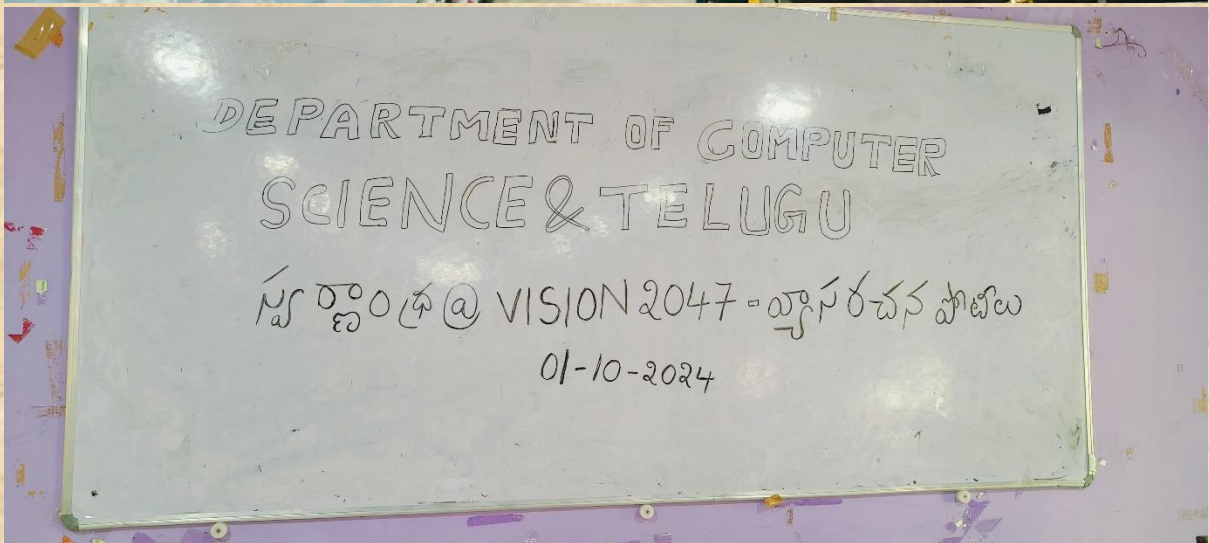 DEPARTMENT OF COMPUTER
SCIENCE & TELUGU
స్వర్ణాంధ్ర @ VISION 2047 - వ్యాసరచన పోటీలు
01-10-2024